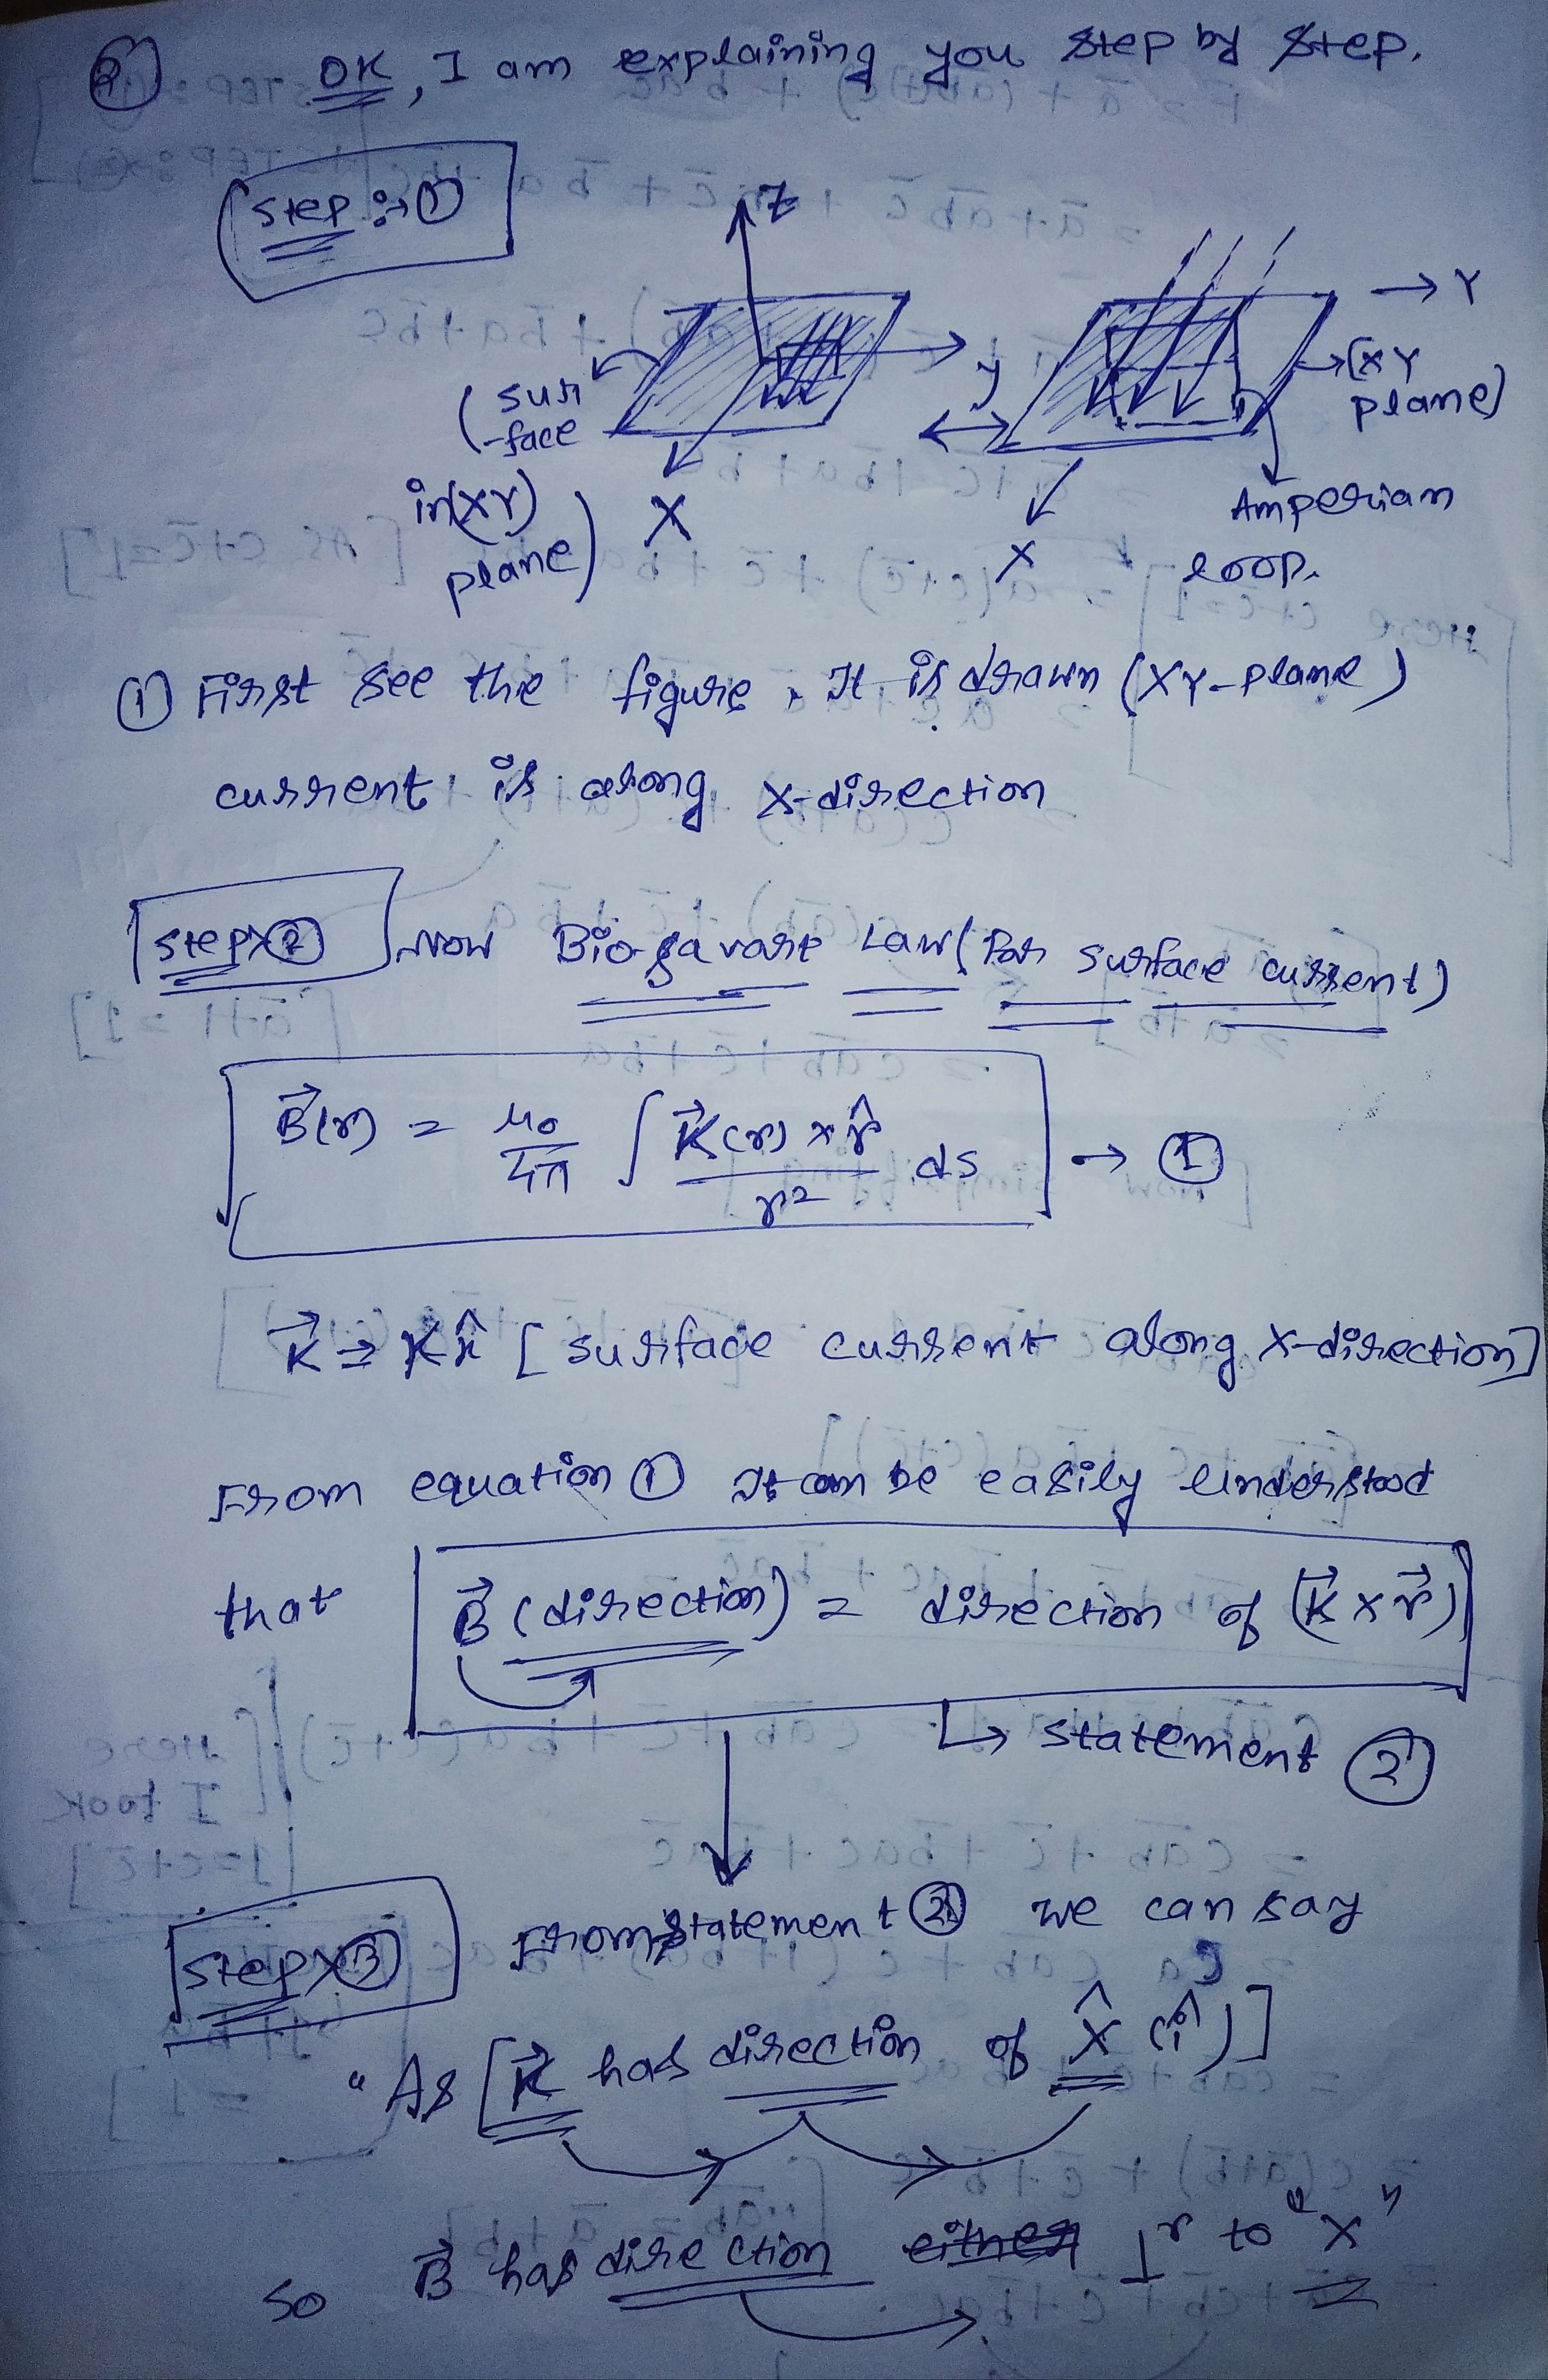 ② OK, I am explaining you step by step.
step :→ ①
Z
y
X
(sur
-face
in(XY)
plane)
→ Y
→(XY
plane)
X
Amperian
loop.
① First see the figure, It is drawn (XY-plane)
current is along X-direction
step ② Now Bio-savart Law (For surface current)
B⃗(r) = μ₀/4π ∫ K⃗(r) × r̂ / r² ds → ①
K⃗ = K x̂ [surface current along X-direction]
From equation ① It can be easily understood
that B⃗ (direction) = direction of (K⃗ × r⃗)
↳ statement ②
step ③ From statement ② we can say
"As [K⃗ has direction of X̂ (î)]
so B⃗ has direction ⊥r to "X"